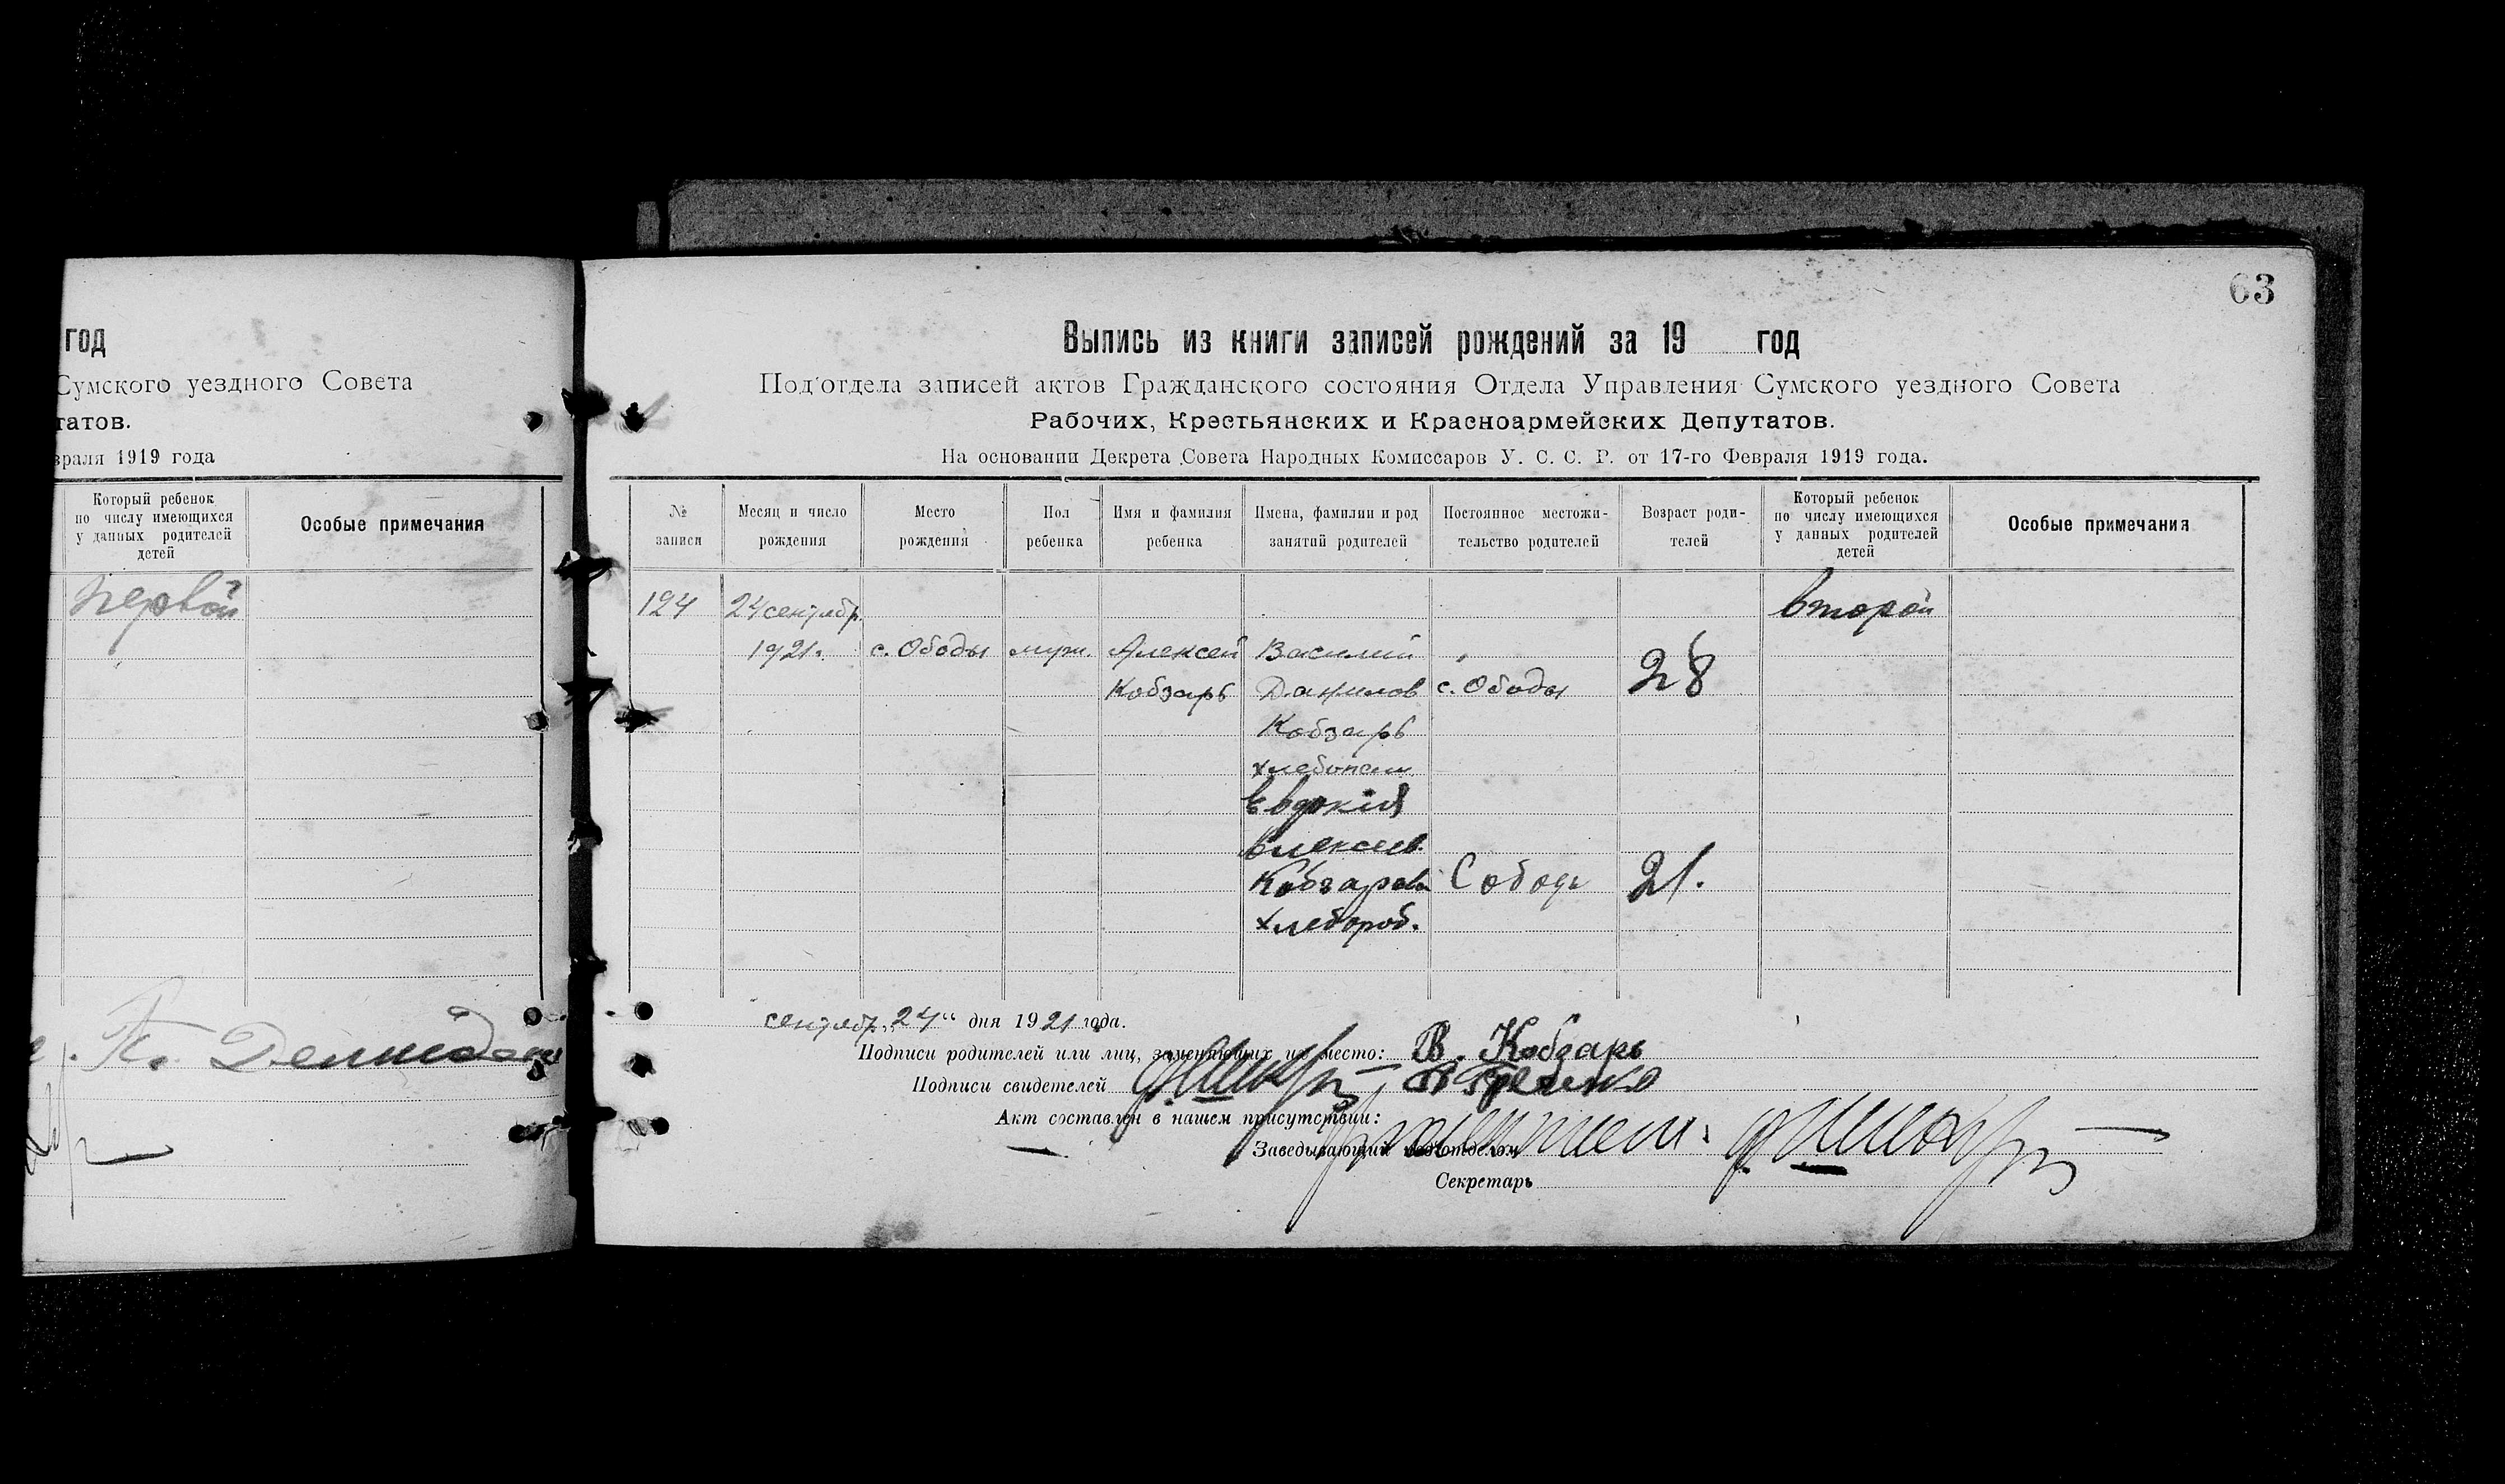 год
Сумского уездного Совета
татов.
враля 1919 года
Который ребенок
по числу имеющихся
у данных родителей
детей
Особые примечания
первой
63
Выпись из книги записей рождений за 19 год
Под'отдела записей актов Гражданского состояния Отдела Управления Сумского уездного Совета
Рабочих, Крестьянских и Красноармейских Депутатов.
На основании Декрета Совета Народных Комиссаров У. С. С. Р. от 17-го Февраля 1919 года.
№
записи
Месяц и число
рождения
Место
рождения
Пол
ребенка
Имя и фамилия
ребенка
Имена, фамилии и род
занятий родителей
Постоянное местожи-
тельство родителей
Возраст роди-
телей
Который ребенок
по числу имеющихся
у данных родителей
детей
Особые примечания
124 24 сентябр. второй
1921. с. Ободы муж. Алексей Василий
Кобзарь Данилов с. Ободы 28
Кобзарь
хлебопаш
Евдокия
Алексеев.
Кобзарева С Ободы 21.
хлебороб.
сентябр. 24" дня 1921 года.
Подписи родителей или лиц, заменяющих их место: В. Кобзарь
Подписи свидетелей
Акт составлен в нашем присутствии:
Заведывающий подотделом
Секретарь